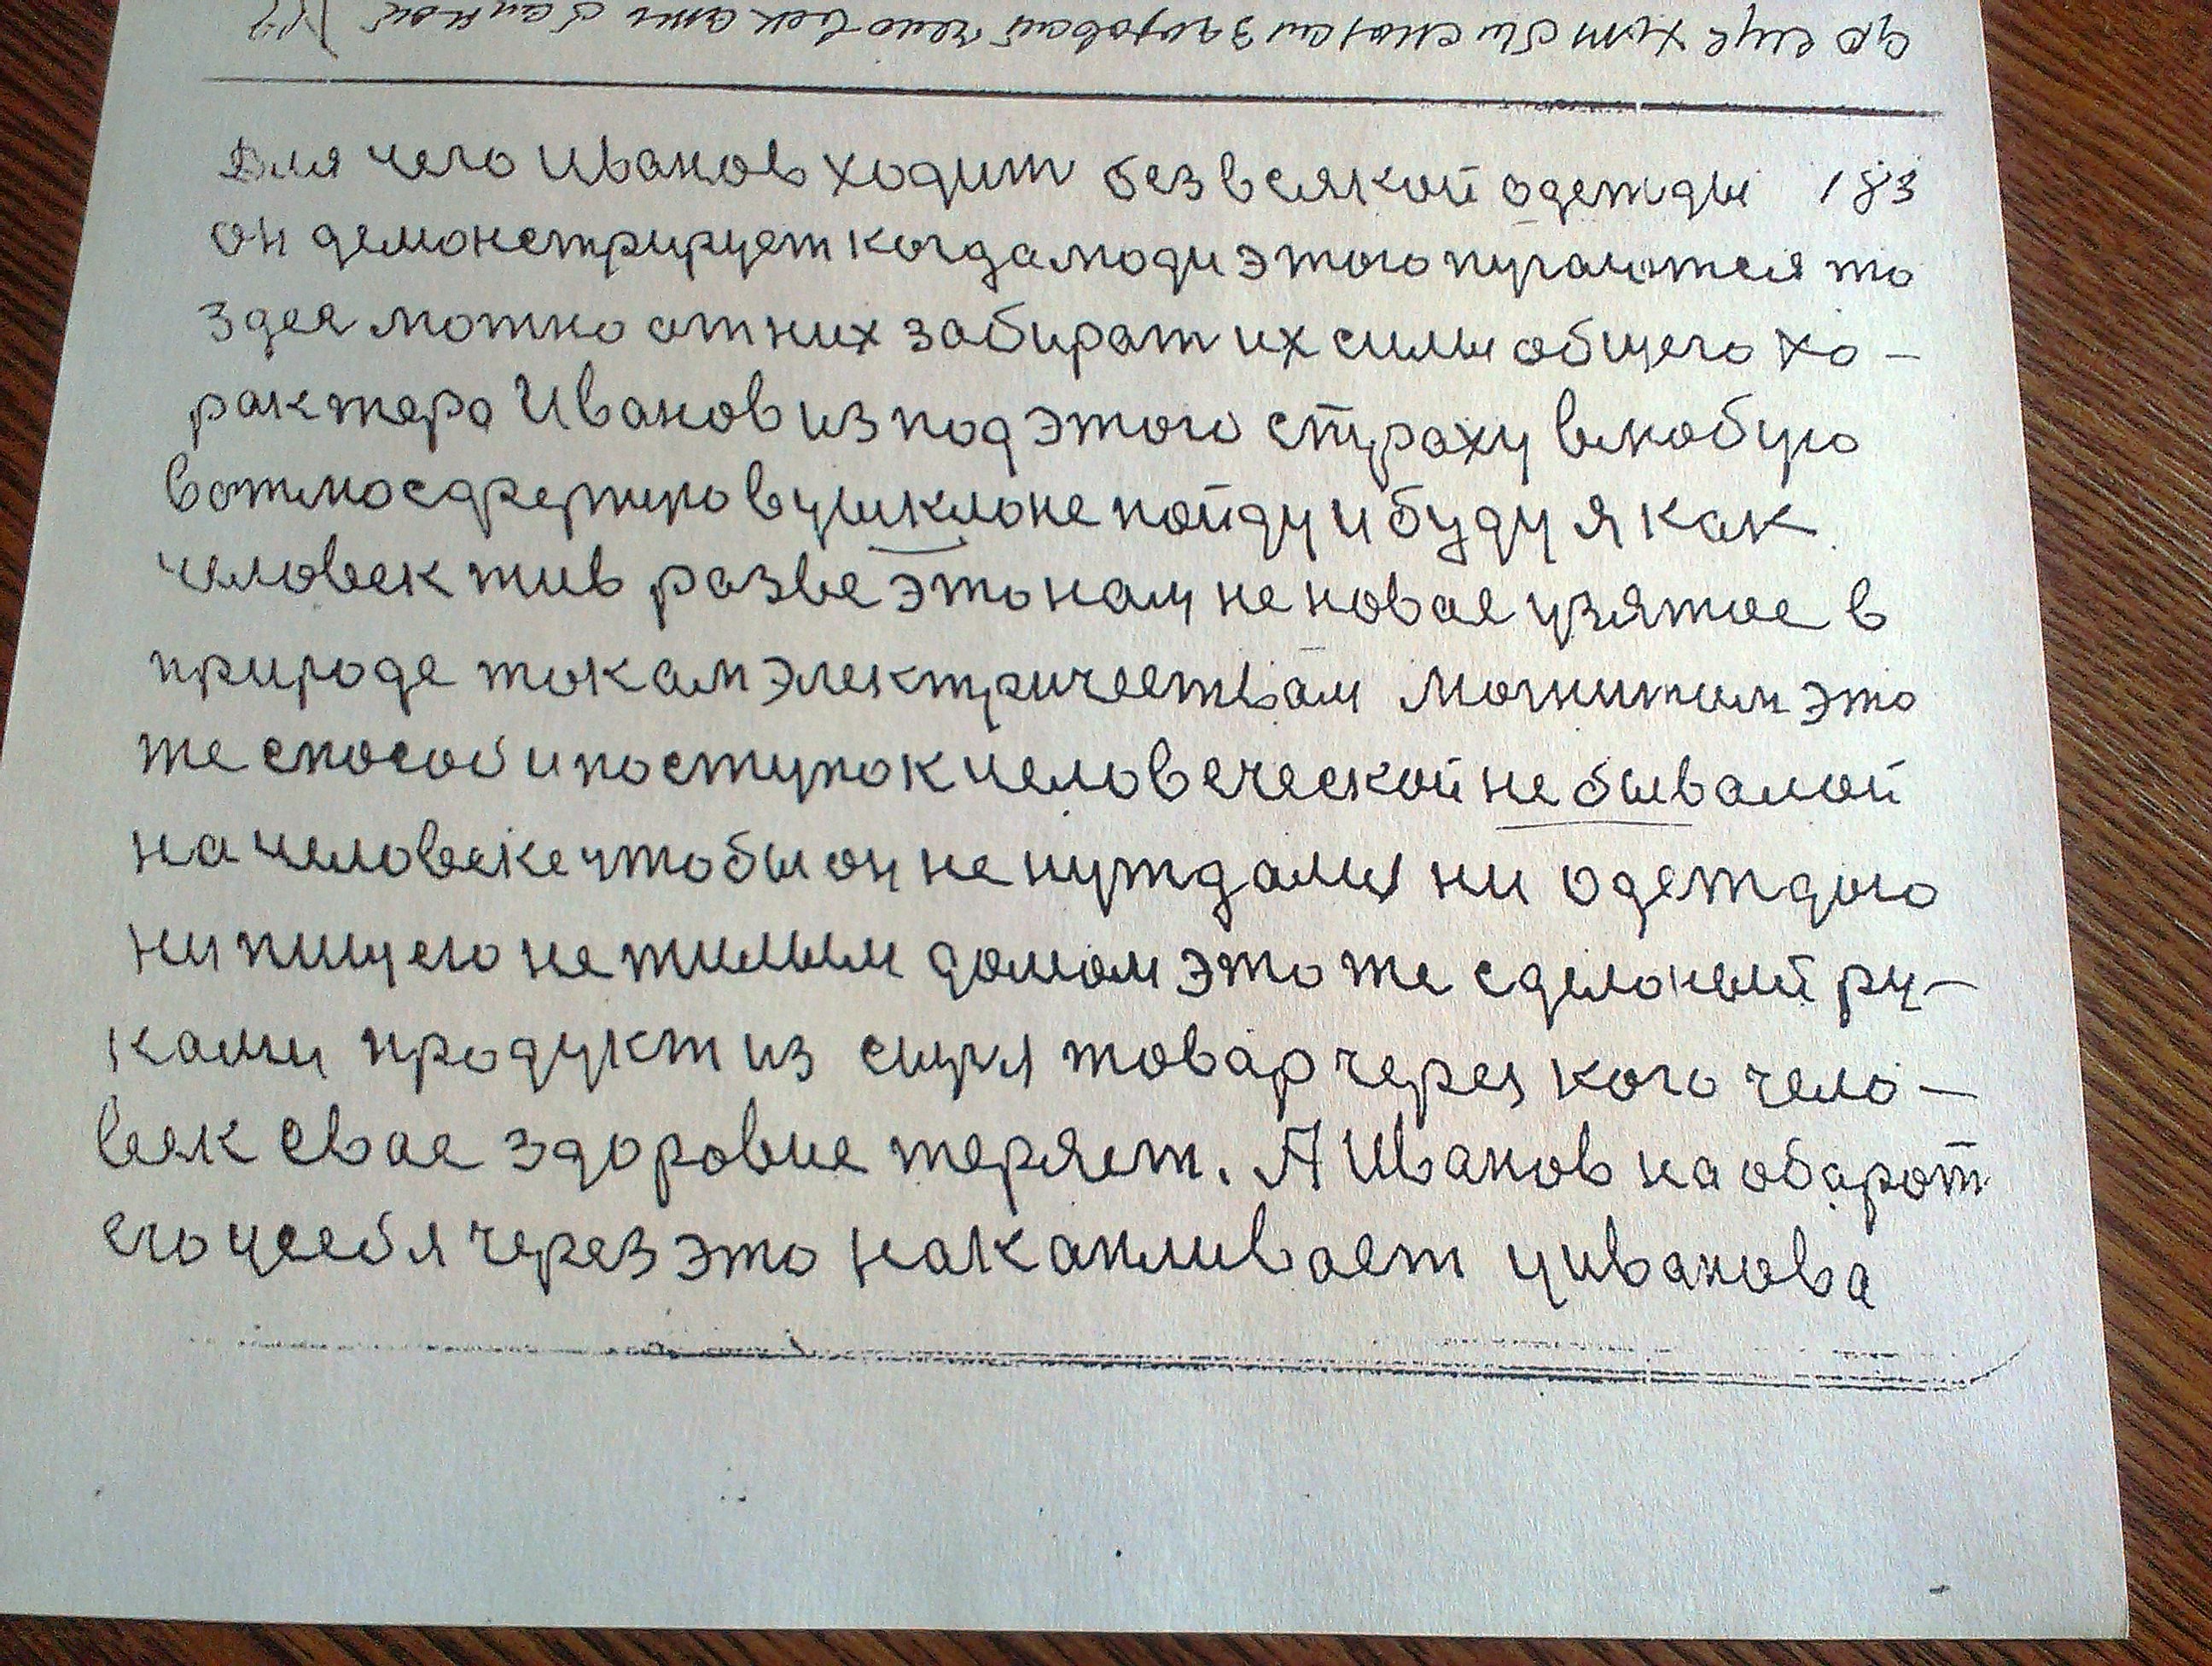 Для чего Иванов ходит без всякой одежды 183
он демонстрирует когда люди этого пугаются то
здея можно от них забират их силы общего ха-
рактера Иванов из под этого страху влюбую
ватмосферную вушклоне пойду и буду я как
человек жив разве это нам не новае узятое в
природе током электричеством Могнитом это
же способ и поступок человеческой не бывалой
на человеке чтобы он не нуждался ни одеждою
ни пищею не жилым домом это же сделоный ру-
ками продукт из сыря товар через кого чело-
век свае здоровие теряет. А Иванов на обарот
его у себя через это накапливает у иванова